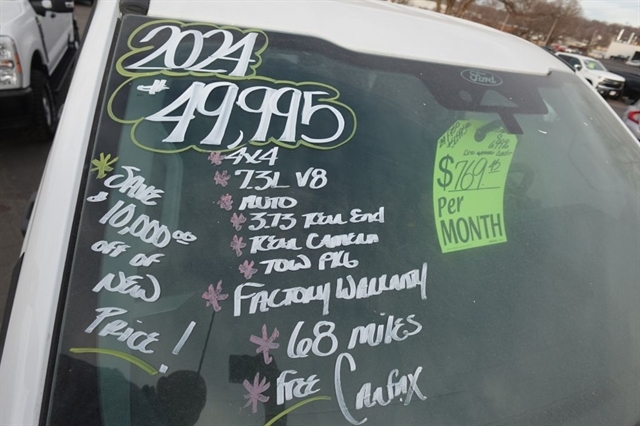 2024
$49,995
* 4x4
* 7.3L V8
* Auto
* 3.73 Rear End
* Rear Camera
* Tow Pkg
* Factory Warranty
* 68 miles
* Free Carfax
* Save
$10,000.00
off of
new
Price!
Ford
$769
Per
MONTH